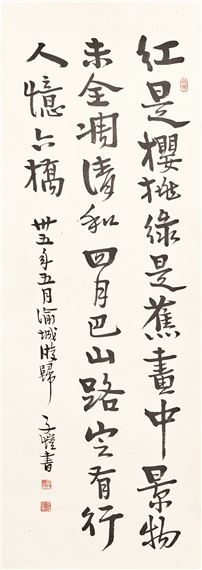 红是樱桃绿是蕉画中景物
未全凋清和四月巴山路定有行
人憶六橋
卅五年五月渝城旅歸 子愷書